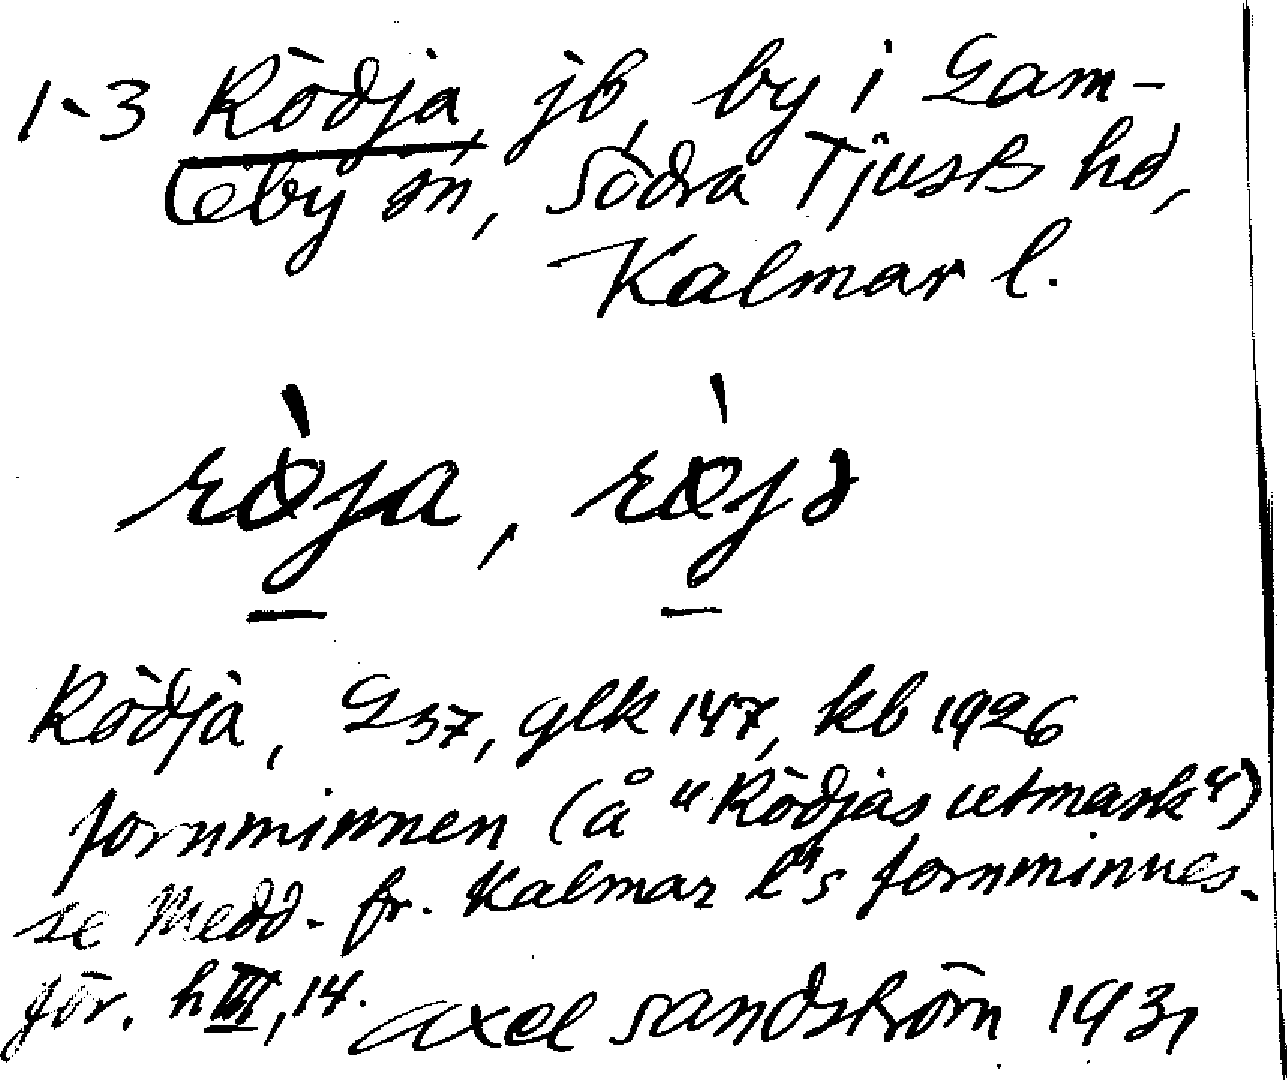 1-3 Rödja, jb, by i Gam-
leby sn, Södra Tjusts hd,
Kalmar l.
rö̀ja, rö̀jə
Rödja, G 37, glk 147, kb 1926
fornminnen (å "Rödjas utmark")
se Medd. fr. Kalmar l:s fornminnes-
för. h III, 14.
Axel Sandström 1931